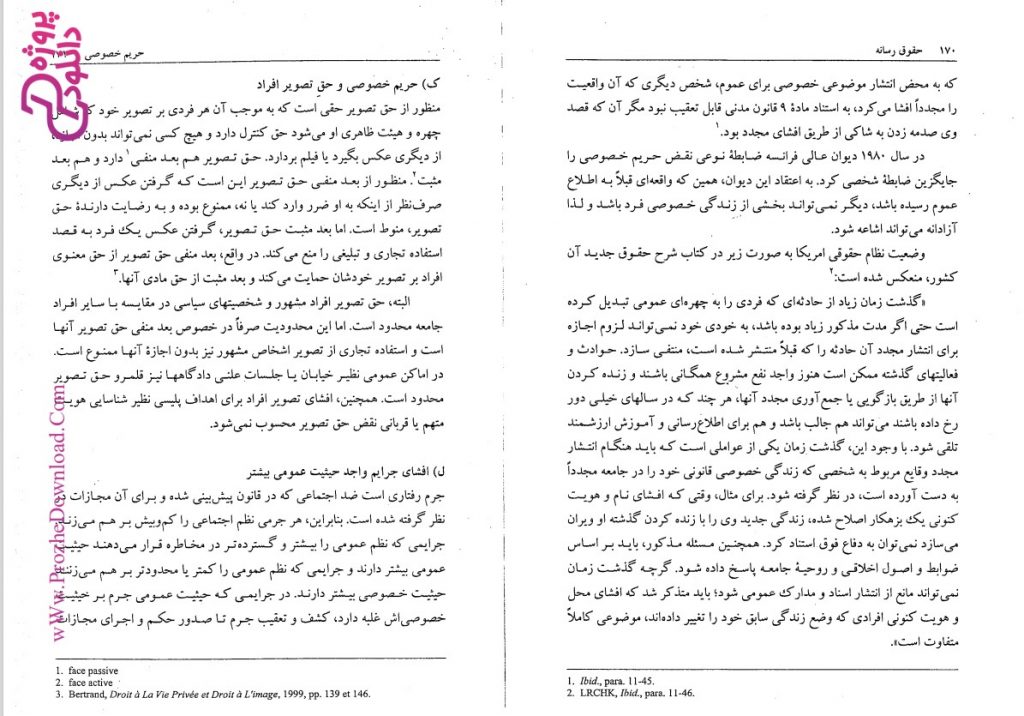 ۱۷۰ حقوق رسانه
که به محض انتشار موضوعی خصوصی برای عموم، شخص دیگری که آن واقعیت
را مجدداً افشا می‌کرد، به استناد مادهٔ ۹ قانون مدنی قابل تعقیب نبود مگر آن که قصد
وی صدمه زدن به شاکی از طریق افشای مجدد بود.۱
در سال ۱۹۸۰ دیوان عالی فرانسه ضابطهٔ نوعی نقض حریم خصوصی را
جایگزین ضابطهٔ شخصی کرد. به اعتقاد این دیوان، همین که واقعه‌ای قبلاً به اطلاع
عموم رسیده باشد، دیگر نمی‌تواند بخشی از زندگی خصوصی فرد باشد و لذا
آزادانه می‌تواند اشاعه شود.
وضعیت نظام حقوقی امریکا به صورت زیر در کتاب شرح حقوق جدید آن
کشور، منعکس شده است:۲
«گذشت زمان زیاد از حادثه‌ای که فردی را به چهره‌ای عمومی تبدیل کرده
است حتی اگر مدت مذکور زیاد بوده باشد، به خودی خود نمی‌تواند لزوم اجازه
برای انتشار مجدد آن حادثه را که قبلاً منتشر شده است، منتفی سازد. حوادث و
فعالیتهای گذشته ممکن است هنوز واجد نفع مشروع همگانی باشند و زنده کردن
آنها از طریق بازگویی یا جمع‌آوری مجدد آنها، هر چند که در سالهای خیلی دور
رخ داده باشند می‌تواند هم جالب باشد و هم برای اطلاع‌رسانی و آموزش ارزشمند
تلقی شود. با وجود این، گذشت زمان یکی از عواملی است که باید هنگام انتشار
مجدد وقایع مربوط به شخصی که زندگی خصوصی قانونی خود را در جامعه مجدداً
به دست آورده است، در نظر گرفته شود. برای مثال، وقتی که افشای نام و هویت
کنونی یک بزهکار اصلاح شده، زندگی جدید وی را با زنده کردن گذشته او ویران
می‌سازد نمی‌توان به دفاع فوق استناد کرد. همچنین مسئله مذکور، باید بر اساس
ضوابط و اصول اخلاقی و روحیهٔ جامعه پاسخ داده شود. گرچه گذشت زمان
نمی‌تواند مانع از انتشار اسناد و مدارک عمومی شود؛ باید متذکر شد که افشای محل
و هویت کنونی افرادی که وضع زندگی سابق خود را تغییر داده‌اند، موضوعی کاملاً
متفاوت است».
1. Ibid., para. 11-45.
2. LRCHK, Ibid., para. 11-46.
حریم خصوصی
ک) حریم خصوصی و حق تصویر افراد
منظور از حق تصویر حقی است که به موجب آن هر فردی بر تصویر خود که شامل
چهره و هیئت ظاهری او می‌شود حق کنترل دارد و هیچ کسی نمی‌تواند بدون
از دیگری عکس بگیرد یا فیلم بردارد. حق تصویر هم بعد منفی۱ دارد و هم بعد
مثبت۲. منظور از بعد منفی حق تصویر این است که گرفتن عکس از دیگری
صرف‌نظر از اینکه به او ضرر وارد کند یا نه، ممنوع بوده و به رضایت دارندهٔ حق
تصویر، منوط است. اما بعد مثبت حق تصویر، گرفتن عکس یک فرد به قصد
استفاده تجاری و تبلیغی را منع می‌کند. در واقع، بعد منفی حق تصویر از حق معنوی
افراد بر تصویر خودشان حمایت می‌کند و بعد مثبت از حق مادی آنها.۳
البته، حق تصویر افراد مشهور و شخصیتهای سیاسی در مقایسه با سایر افراد
جامعه محدود است. اما این محدودیت صرفاً در خصوص بعد منفی حق تصویر آنها
است و استفاده تجاری از تصویر اشخاص مشهور نیز بدون اجازهٔ آنها ممنوع است.
در اماکن عمومی نظیر خیابان یا جلسات علنی دادگاهها نیز قلمرو حق تصویر
محدود است. همچنین، افشای تصویر افراد برای اهداف پلیسی نظیر شناسایی هویت
متهم یا قربانی نقض حق تصویر محسوب نمی‌شود.
ل) افشای جرایم واجد حیثیت عمومی بیشتر
جرم رفتاری است ضد اجتماعی که در قانون پیش‌بینی شده و برای آن مجازات در
نظر گرفته شده است. بنابراین، هر جرمی نظم اجتماعی را کم‌وبیش بر هم می‌زند.
جرایمی که نظم عمومی را بیشتر و گسترده‌تر در مخاطره قرار می‌دهند حیثیت
عمومی بیشتر دارند و جرایمی که نظم عمومی را کمتر یا محدودتر بر هم می‌زنند
حیثیت خصوصی بیشتر دارند. در جرایمی که حیثیت عمومی جرم بر حیثیت
خصوصی‌اش غلبه دارد، کشف و تعقیب جرم تا صدور حکم و اجرای مجازات
1. face passive
2. face active
3. Bertrand, Droit à La Vie Privée et Droit à L'image, 1999, pp. 139 et 146.
پروژه
دانلود
wWw.ProzheDownload.Com